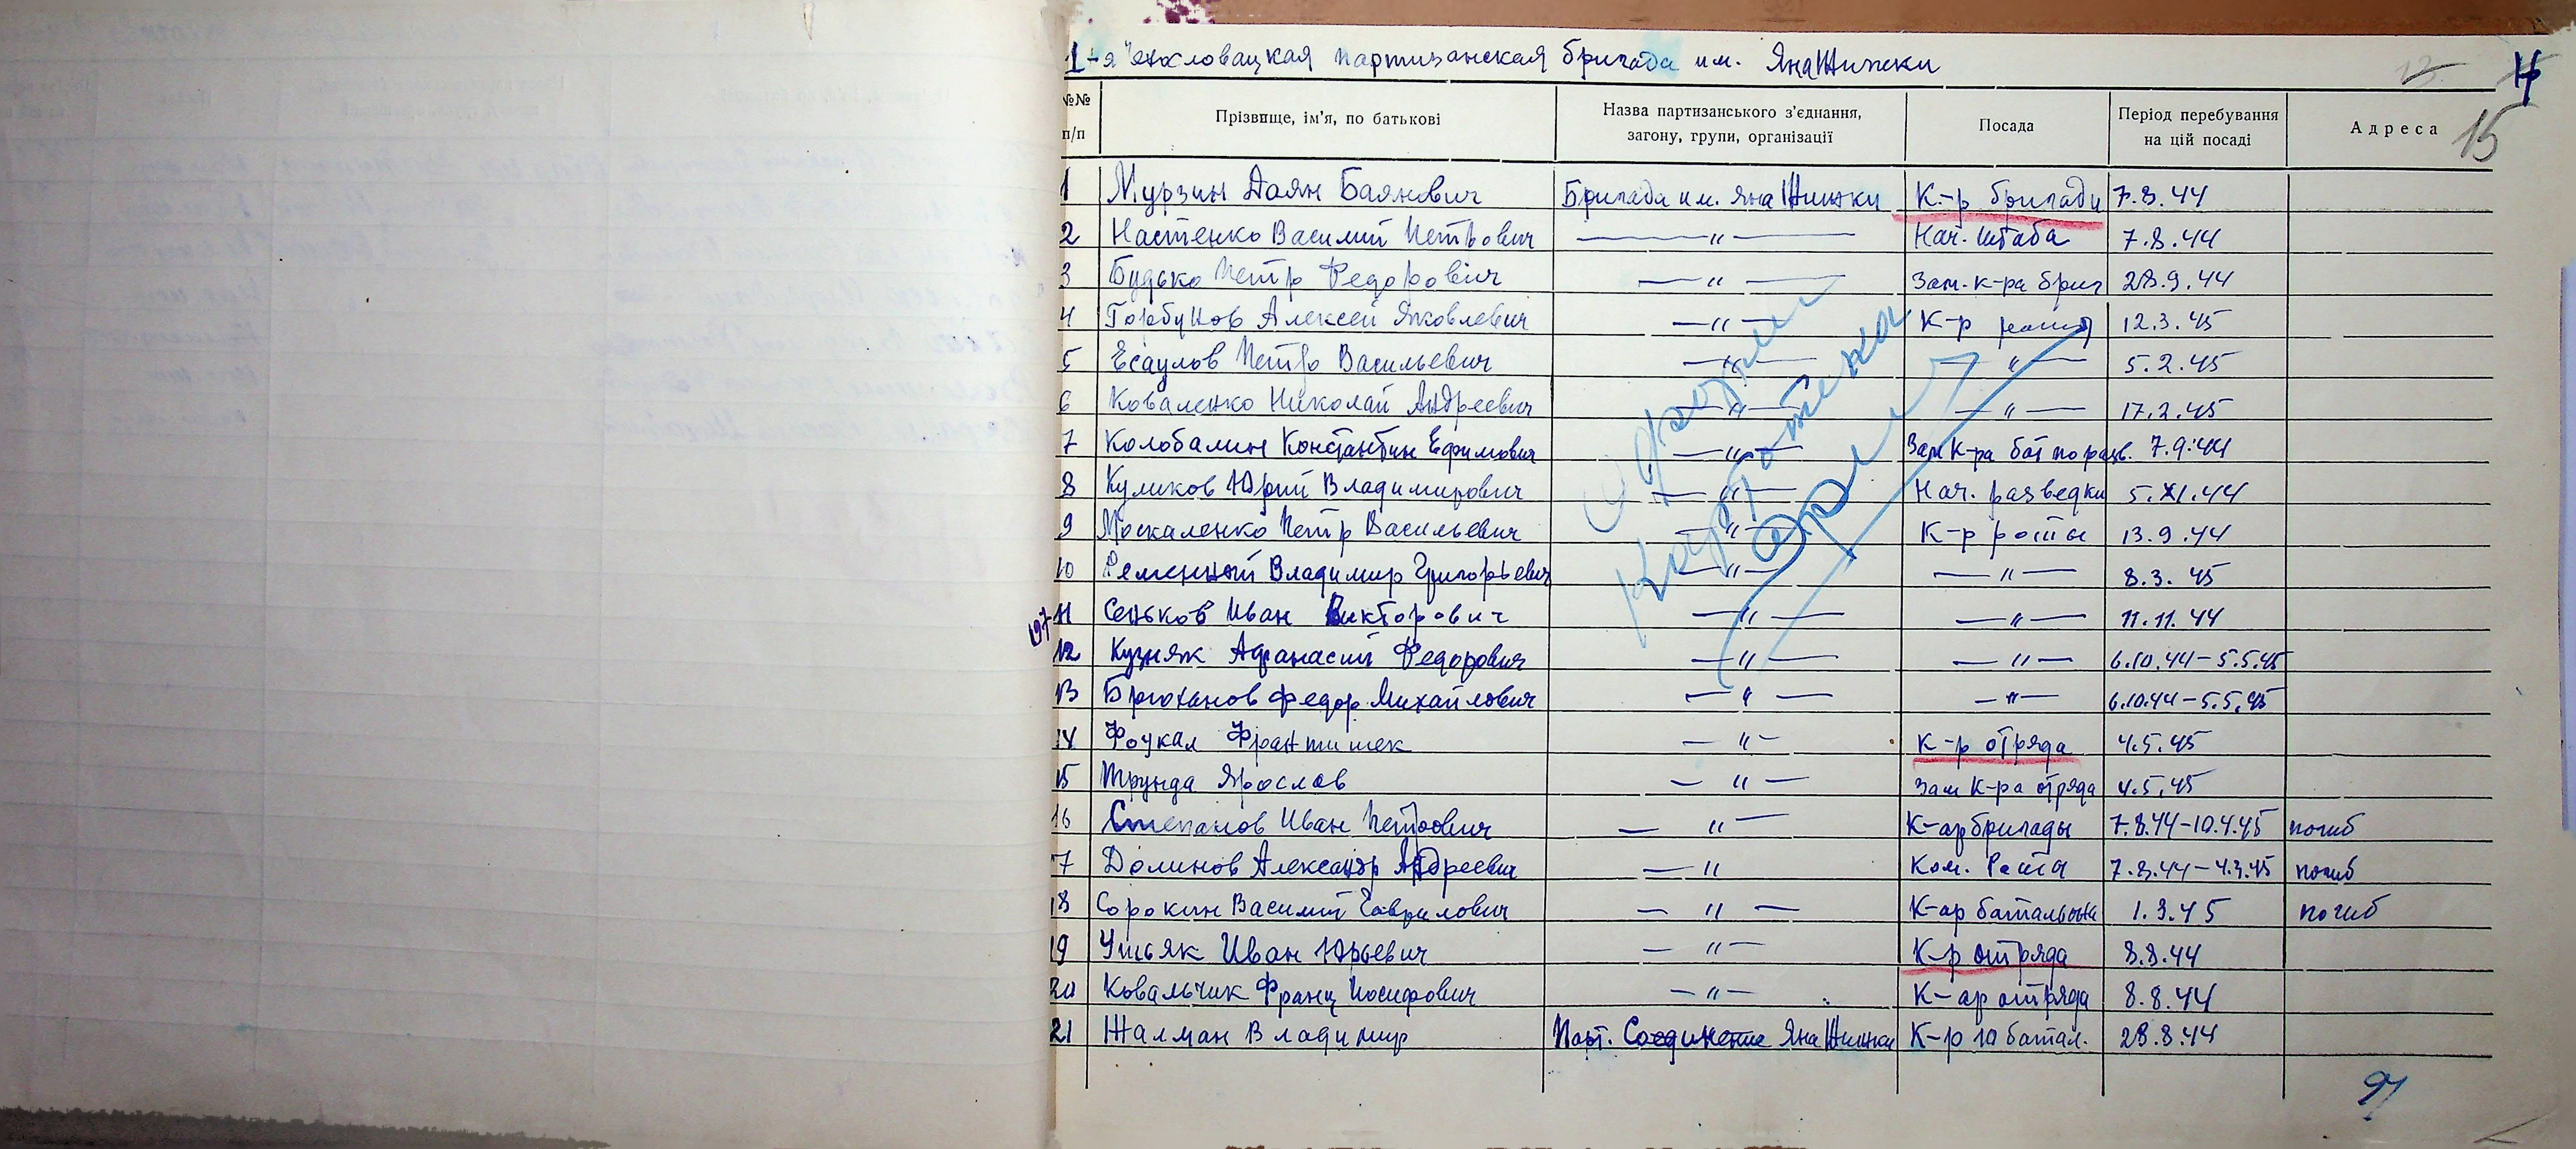 1-я Чехословацкая партизанская бригада им. Яна Жижки
15
№№ п/п Прізвище, ім'я, по батькові Назва партизанського з'єднання, загону, групи, організації Посада Період перебування на цій посаді Адреса
1 Мурзин Даян Баянович Бригада им. Яна Жижки К-р бригади 7.8.44
2 Настенко Василий Петрович —"— Нач. штаба 7.8.44
3 Будько Петр Федорович —"— Зам. к-ра бриг 28.9.44
4 Горбунов Алексей Яковлевич —"— К-р роты 12.3.45
5 Есаулов Петр Васильевич —"— —"— 5.2.45
6 Коваленко Николай Андреевич —"— —"— 17.2.45
7 Колобалин Константин Ефимович —"— Зам К-ра бат по разв. 7.9.44
8 Куликов Юрий Владимирович —"— Нач. разведки 5.XI.44
9 Москаленко Петр Васильевич —"— К-р роты 13.9.44
10 Ременный Владимир Григорьевич —"— —"— 8.3.45
11 Сеньков Иван Викторович —"— —"— 11.11.44
12 Кузняк Афанасий Федорович —"— —"— 6.10.44-5.5.45
13 Брюханов Федор Михайлович —"— —"— 6.10.44-5.5.45
14 Фоукал Франтишек —"— К-р отряда 4.5.45
15 Трунда Ярослав —"— Зам К-ра отряда 4.5.45
16 Степанов Иван Петрович —"— К-ар бригады 7.8.44-10.4.45 погиб
17 Долинов Александр Андреевич —" Ком. Роты 7.8.44-4.3.45 погиб
18 Сорокин Василий Гаврилович —"— К-ар батальона 1.3.45 погиб
19 Ушьяк Иван Юрьевич —"— К-р отряда 8.8.44
20 Ковальчик Франц Иосифович —"— К-ар отряда 8.8.44
21 Жалман Владимир Парт. Соединение Яна Жижки К-р 10 батал. 28.8.44
картотека